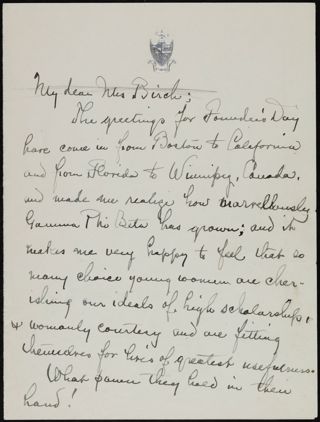 My dear Mrs Birch;
The greetings for Founder's Day
have come in from Boston to California
and from Florida to Winnipeg, Canada,
and made me realize how marvellously
Gamma Phi Beta has grown; and it
makes me very happy to feel that so
many choice young women are cher-
ishing our ideals of high scholarship,
& womanly courtesy and are fitting
themselves for lives of greatest usefulness.
What power they hold in their
hand!